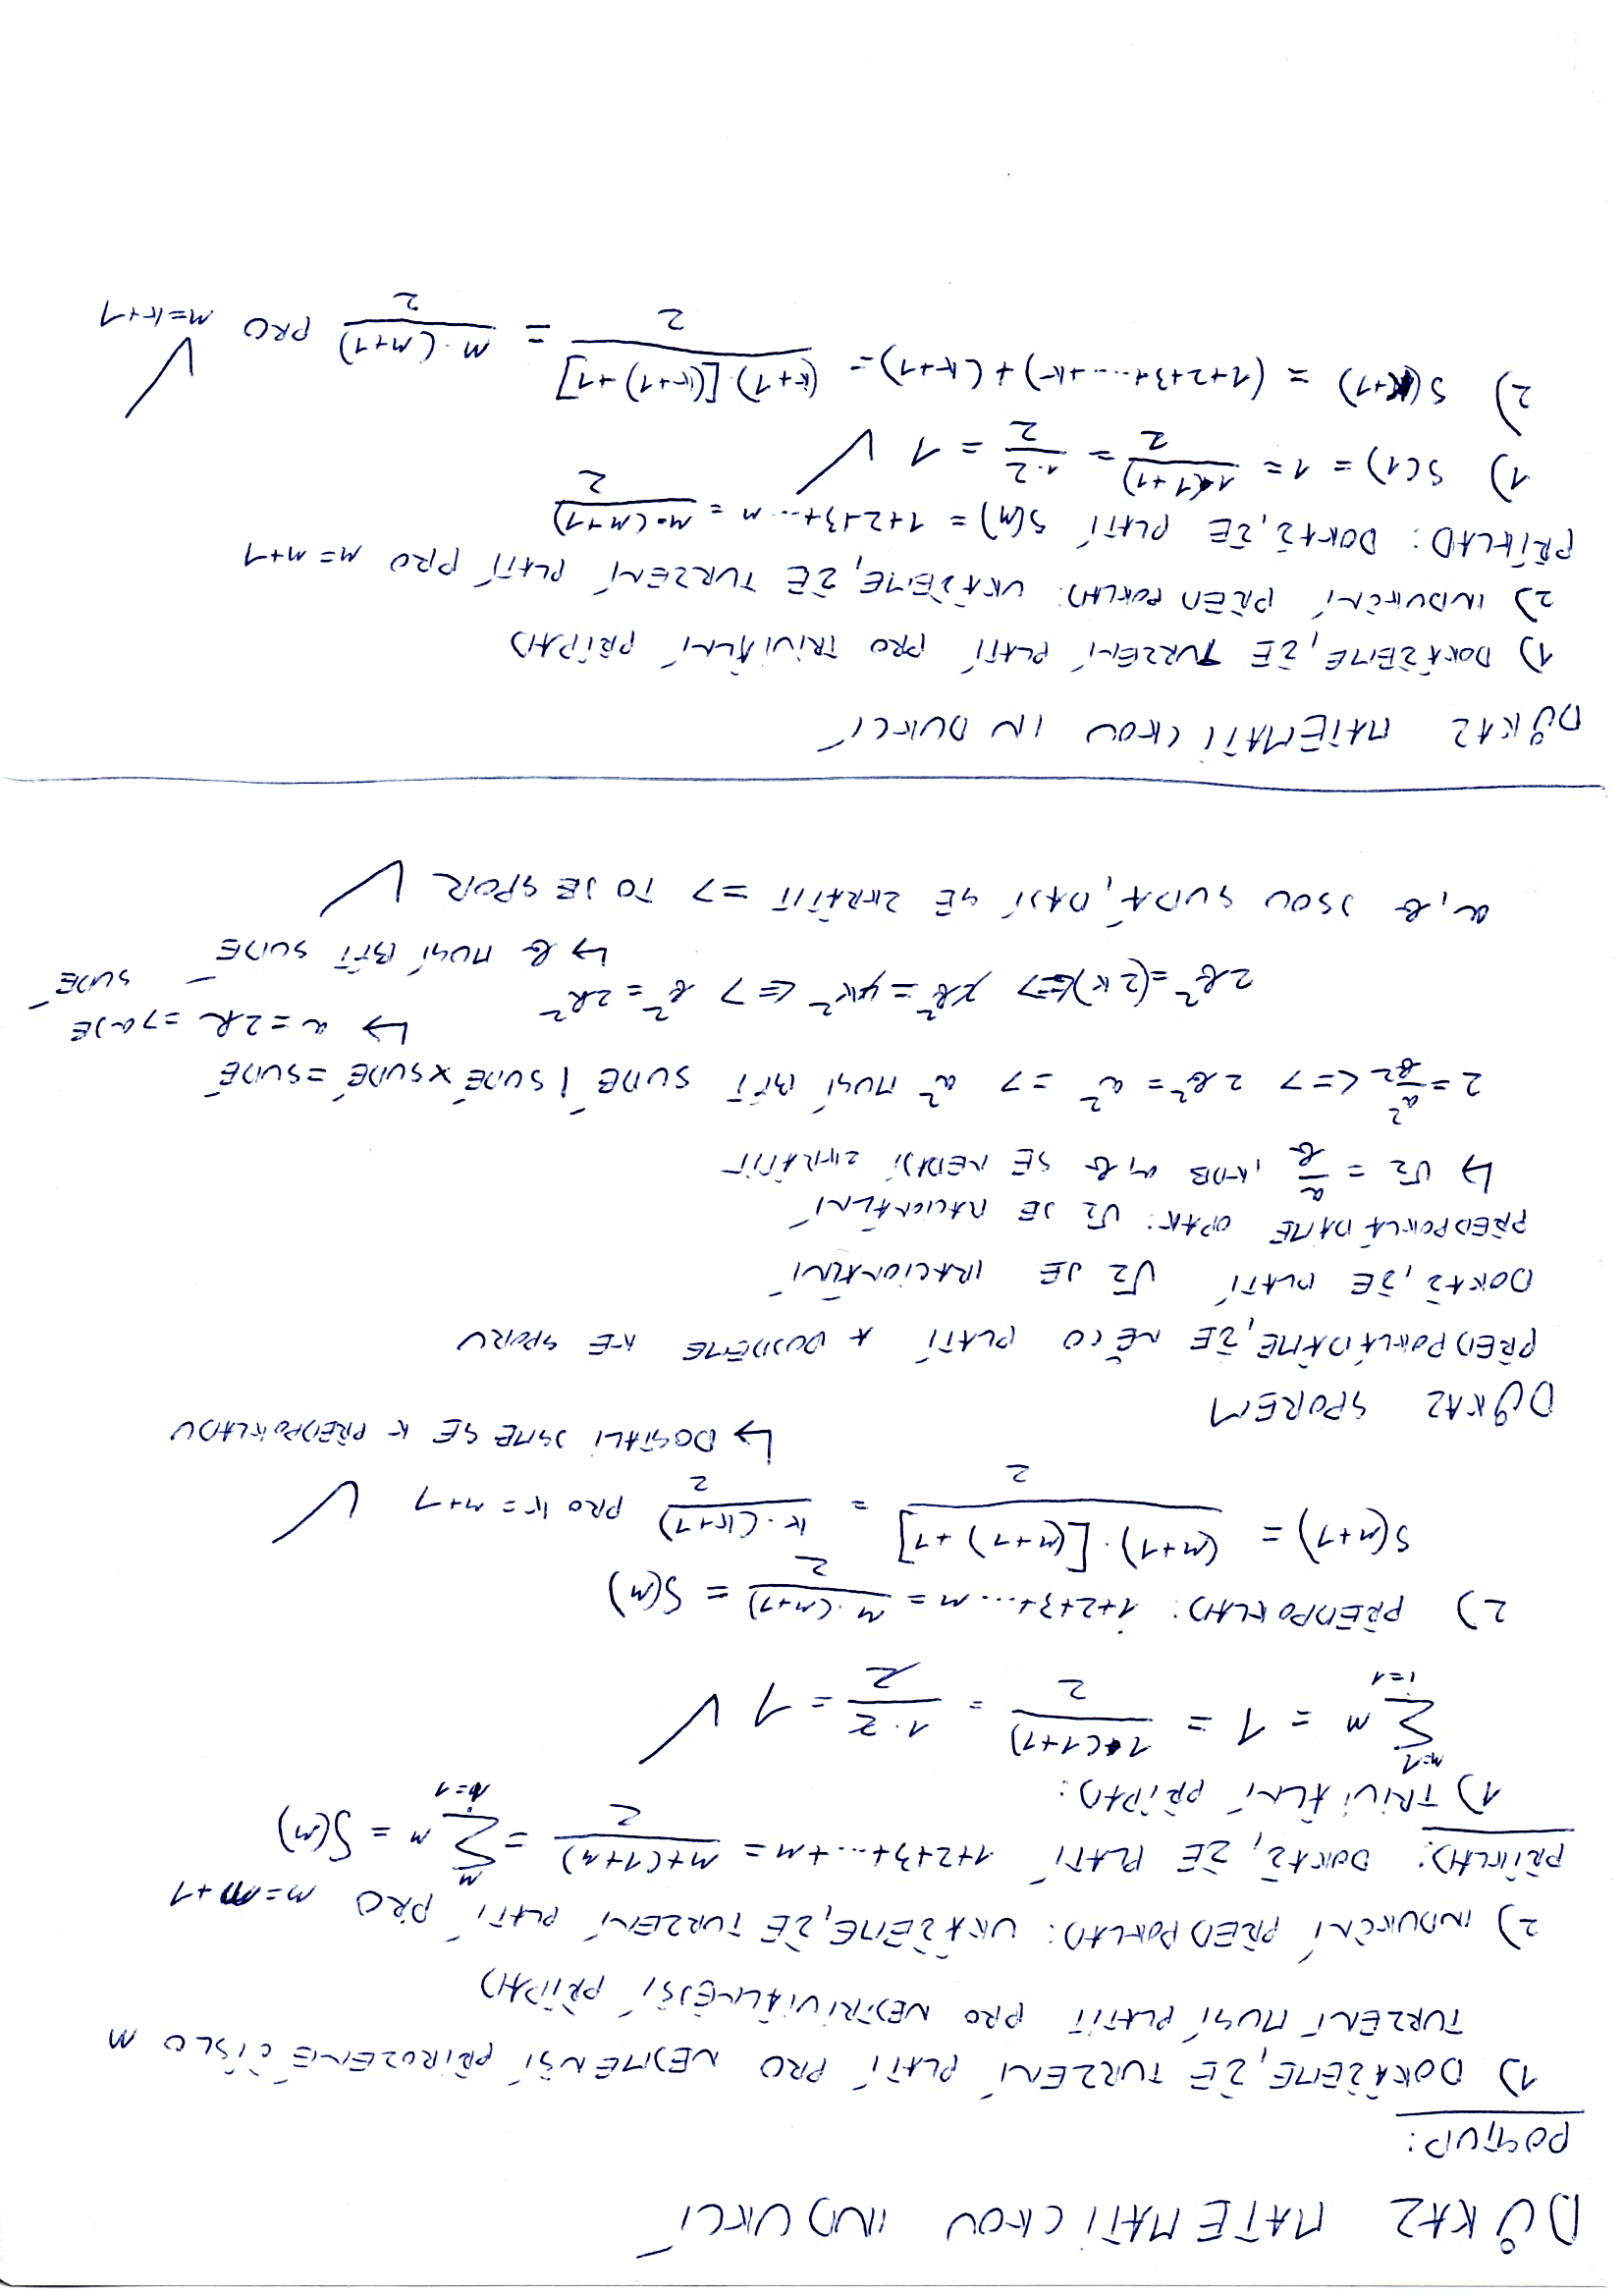 DŮKAZ MATEMATICKOU INDUKCÍ
POSTUP:
1) DOKÁŽEME, ŽE TVRZENÍ PLATÍ PRO NEJMENŠÍ PŘIROZENÉ ČÍSLO n
TVRZENÍ MUSÍ PLATIT PRO NEJTRIVIÁLNĚJŠÍ PŘÍPAD
2) INDUKČNÍ PŘEDPOKLAD: UKÁŽEME, ŽE TVRZENÍ PLATÍ PRO n=n+1
PŘÍKLAD: DOKAŽ, ŽE PLATÍ 1+2+3+...+n = n+(1+n)/2 = ∑_{n=1}^{n} n = S(n)
1) TRIVIÁLNÍ PŘÍPAD:
∑_{i=1}^{n=1} n = 1 = 1·(1+1)/2 = 1·2/2 = 1 ✓
2) PŘEDPOKLAD: 1+2+3+...n = n·(n+1)/2 = S(n)
S(n+1) = (n+1)·[(n+1)+1]/2 = k·(k+1)/2 PRO k=n+1 ✓
↳ DOSTALI JSME SE K PŘEDPOKLADU
DŮKAZ SPOREM
PŘEDPOKLÁDÁME, ŽE NĚCO PLATÍ A DOJDEME KE SPORU
DOKAŽ, ŽE PLATÍ √2 JE IRACIONÁLNÍ
PŘEDPOKLÁDÁME OPAK: √2 JE RACIONÁLNÍ
↳ √2 = a/b, KDE a,b SE NEDAJÍ ZKRÁTIT
2 = a²/b² <=> 2b² = a² => a² MUSÍ BÝT SUDÉ | SUDÉ × SUDÉ = SUDÉ
↳ a=2k => a JE SUDÉ
2b² = (2k)² <=> 2b² = 4k² <=> b² = 2k²
↳ b MUSÍ BÝT SUDÉ
a,b JSOU SUDÁ, DAJÍ SE ZKRÁTIT => TO JE SPOR ✓
DŮKAZ MATEMATICKOU INDUKCÍ
1) DOKÁŽEME, ŽE TVRZENÍ PLATÍ PRO TRIVIÁLNÍ PŘÍPAD
2) INDUKČNÍ PŘEDPOKLAD: UKÁŽEME, ŽE TVRZENÍ PLATÍ PRO n=n+1
PŘÍKLAD: DOKAŽ, ŽE PLATÍ S(n) = 1+2+3+...n = n·(n+1)/2
1) S(1) = 1 = 1·(1+1)/2 = 1·2/2 = 1 ✓
2) S(k+1) = (1+2+3+...+k)+(k+1) = (k+1)·[(k+1)+1]/2 = n·(n+1)/2 PRO n=k+1 ✓